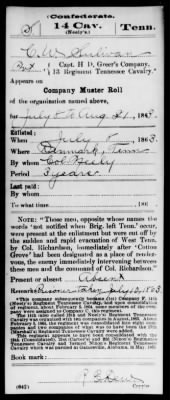 (Confederate.)
14 Cav.
(Neely's.)
Tenn.
C. W. Sullivan
Pvt
Capt. H D. Greer's Company,
13 Regiment Tennessee Cavalry.*
Appears on
Company Muster Roll
of the organization named above,
for July 5 to Aug 31, 1863.
Enlisted:
When July 5, 1863.
Where Denmark, Tenn
By whom Col Neely
Period 3 years
Last paid:
By whom
To what time , 186 .
NOTE: "These men, opposite whose names the
words 'not notified when Brig. left Tenn.' occur, were
present at the enlistment but were run off by
the sudden and rapid evacuation of West Tenn.
by Col. Richardson, immediately after 'Cotton
Grove' was designated as a place of rendez-
vous, the enemy immediately intervening between
these men and the command of Col. Richardson."
Present or absent Absent
Remarks: Prisoner taken July 10, 1863
*This company subsequently became
(Neely's) Regiment Tennessee Cavalry, and upon consolidation
of regiments, about February 5, 1864, some members of the
company were assigned to Company C, this regiment.
Book mark:
(642)
Copyist.